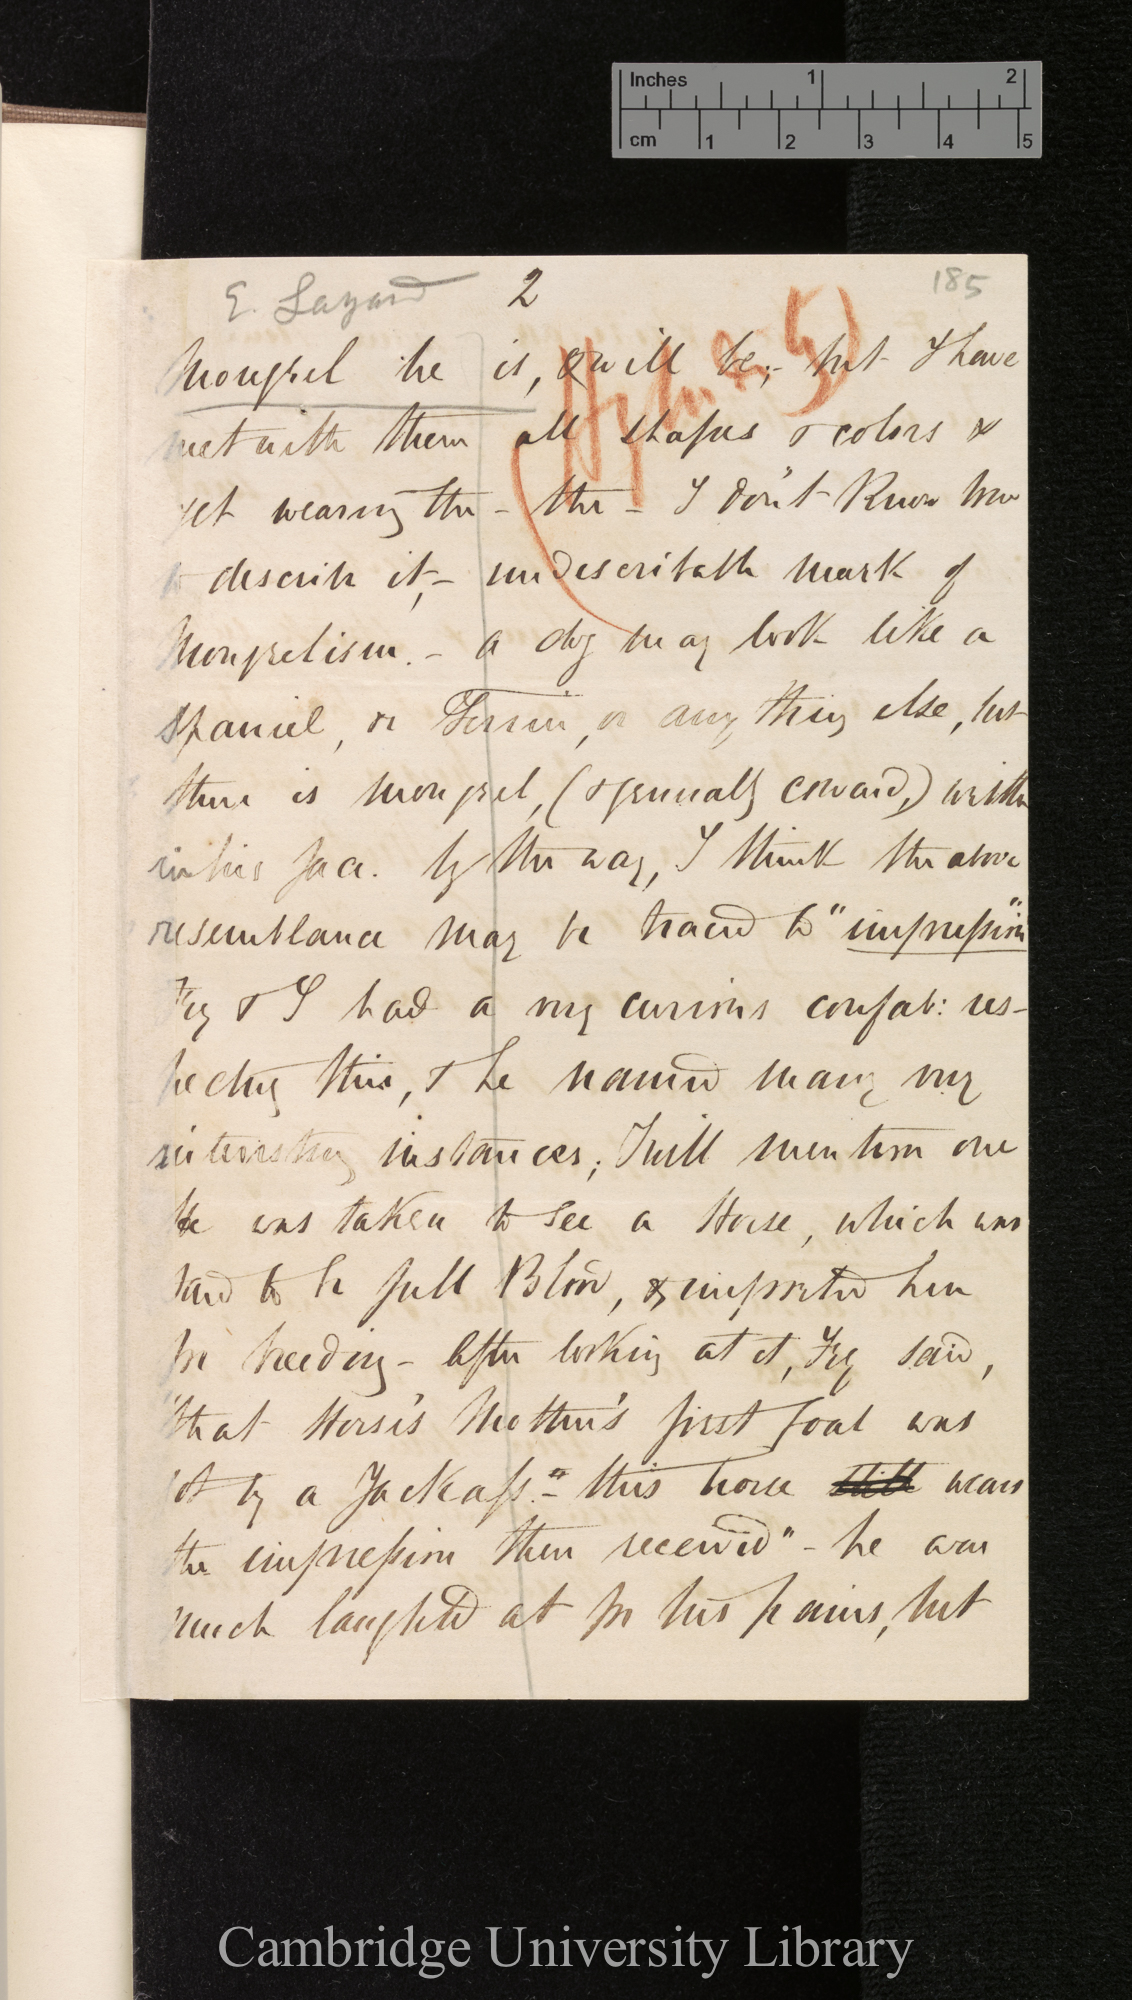 Inches 1 2
cm 1 2 3 4 5
E. Layard 2 185
Mongrel he is, & will be;- but I have
met with them all shapes & colors &
yet wearing the - the - I don't Know how
to describe it,- undescribable mark of
Mongrelism. - a dog may look like a
Spaniel, or Terrier, or any thing else, but
there is mongrel, (& generally coward,) written
in his face. by the way, I think the above
resemblance may be traced to "impression"
Fry & I had a very curious confab: res-
pecting this, & he named many very
interesting instances; I will mention one
He was taken to see a Horse, which was
said to be full Blood, & imported here
for breeding - After looking at it, Fry said,
"that Horse's Mother's first foal was
got by a Jackass." - this horse still wears
the impression then received" - he was
much laughed at for his pains, but
Cambridge University Library